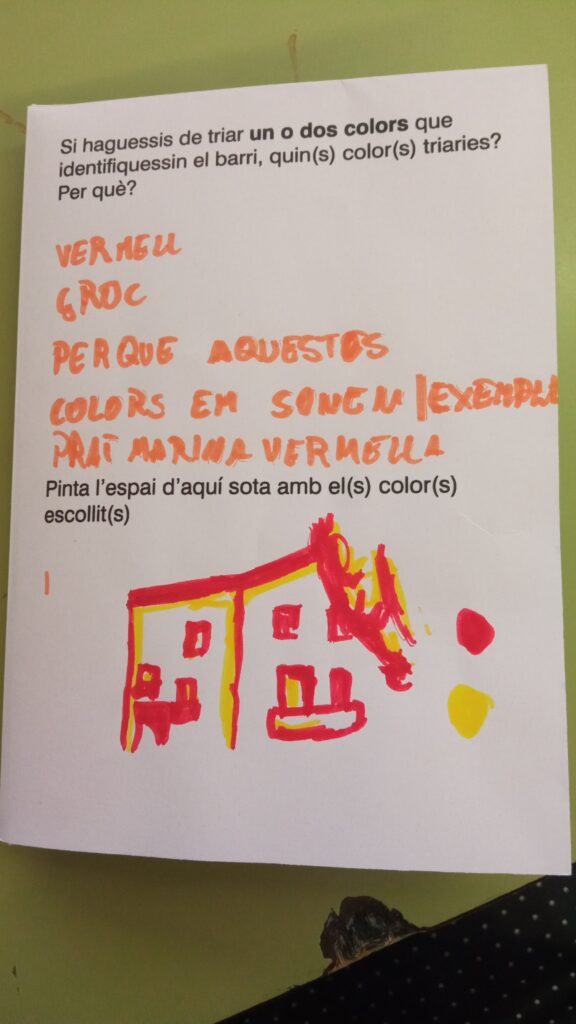 Si haguessis de triar un o dos colors que
identifiquessin el barri, quin(s) color(s) triaries?
Per què?
VERMELL
GROC
PERQUE AQUESTOS
COLORS EM SONEN | EXEMPLE
PRAT MARINA VERMELLA
Pinta l'espai d'aquí sota amb el(s) color(s)
escollit(s)